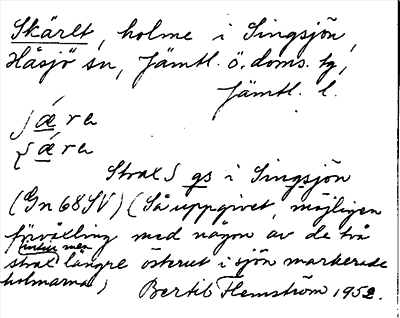 Skäret, holme i Singsjön,
Håsjö sn, Jämtl. ö. doms. tg,
Jämtl. l.
ʃǽra
ʃǽra
Strax S gs i Singsjön
(Gn 68 SV) (Så uppgivet, möjligen
förväxling med någon av de två
inritn men
strax längre österut i sjön markerade
holmarna)
Bertil Flemström 1952.